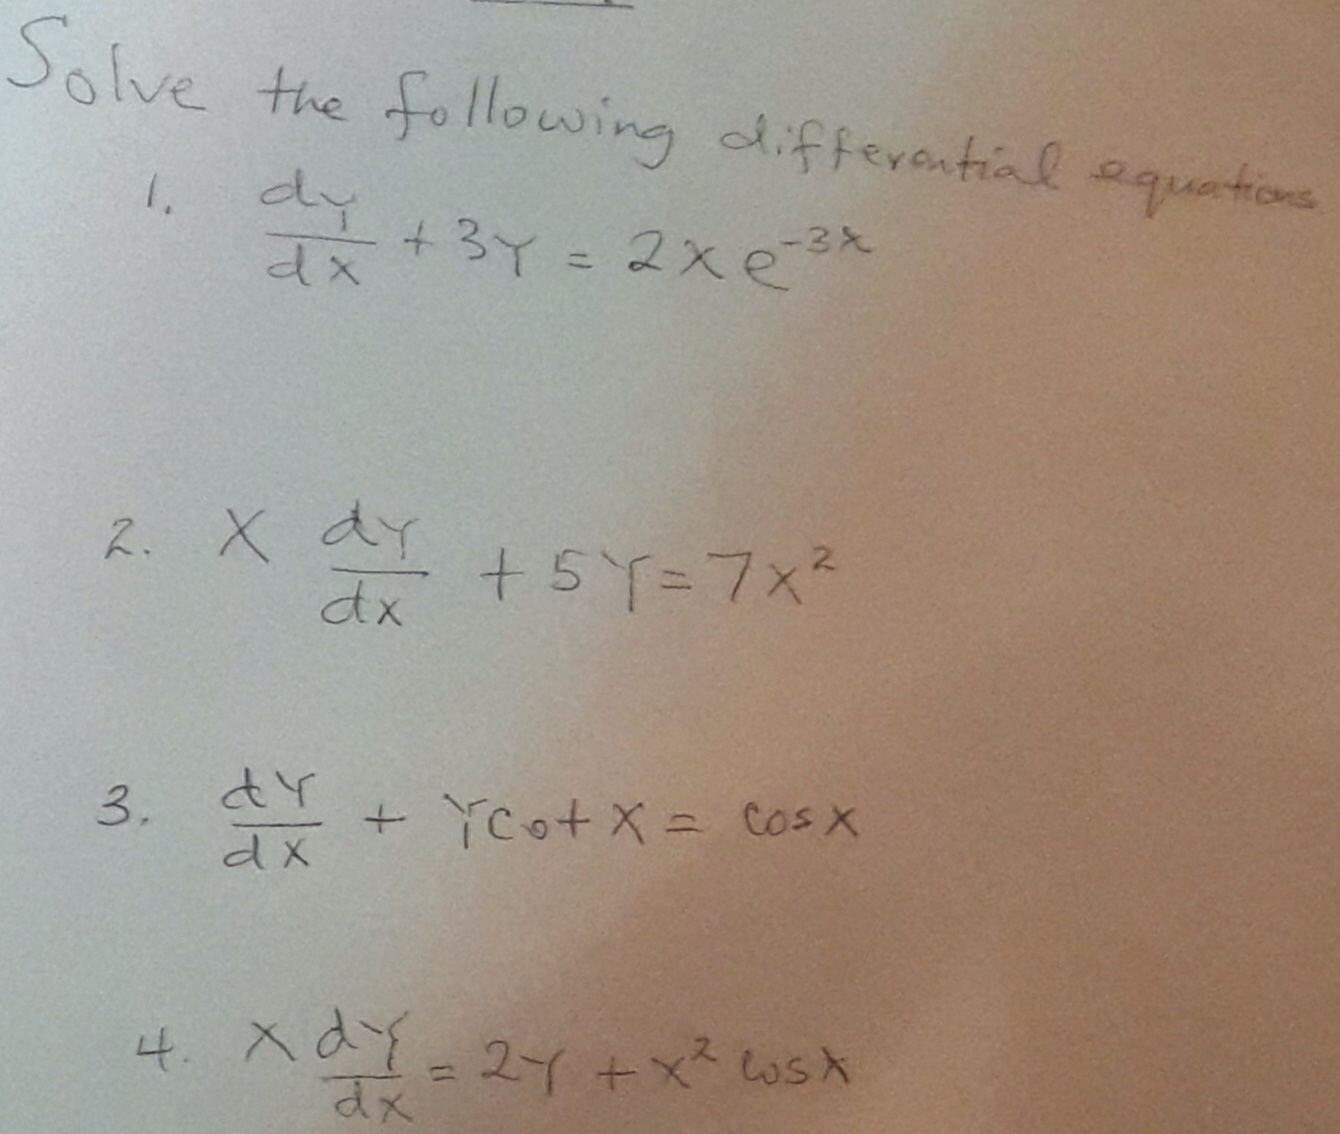 Solve the following differential equations
1. dy/dx + 3y = 2xe^-3x
2. x dy/dx + 5y = 7x²
3. dy/dx + y cot x = cos x
4. x dy/dx = 2y + x² cos x